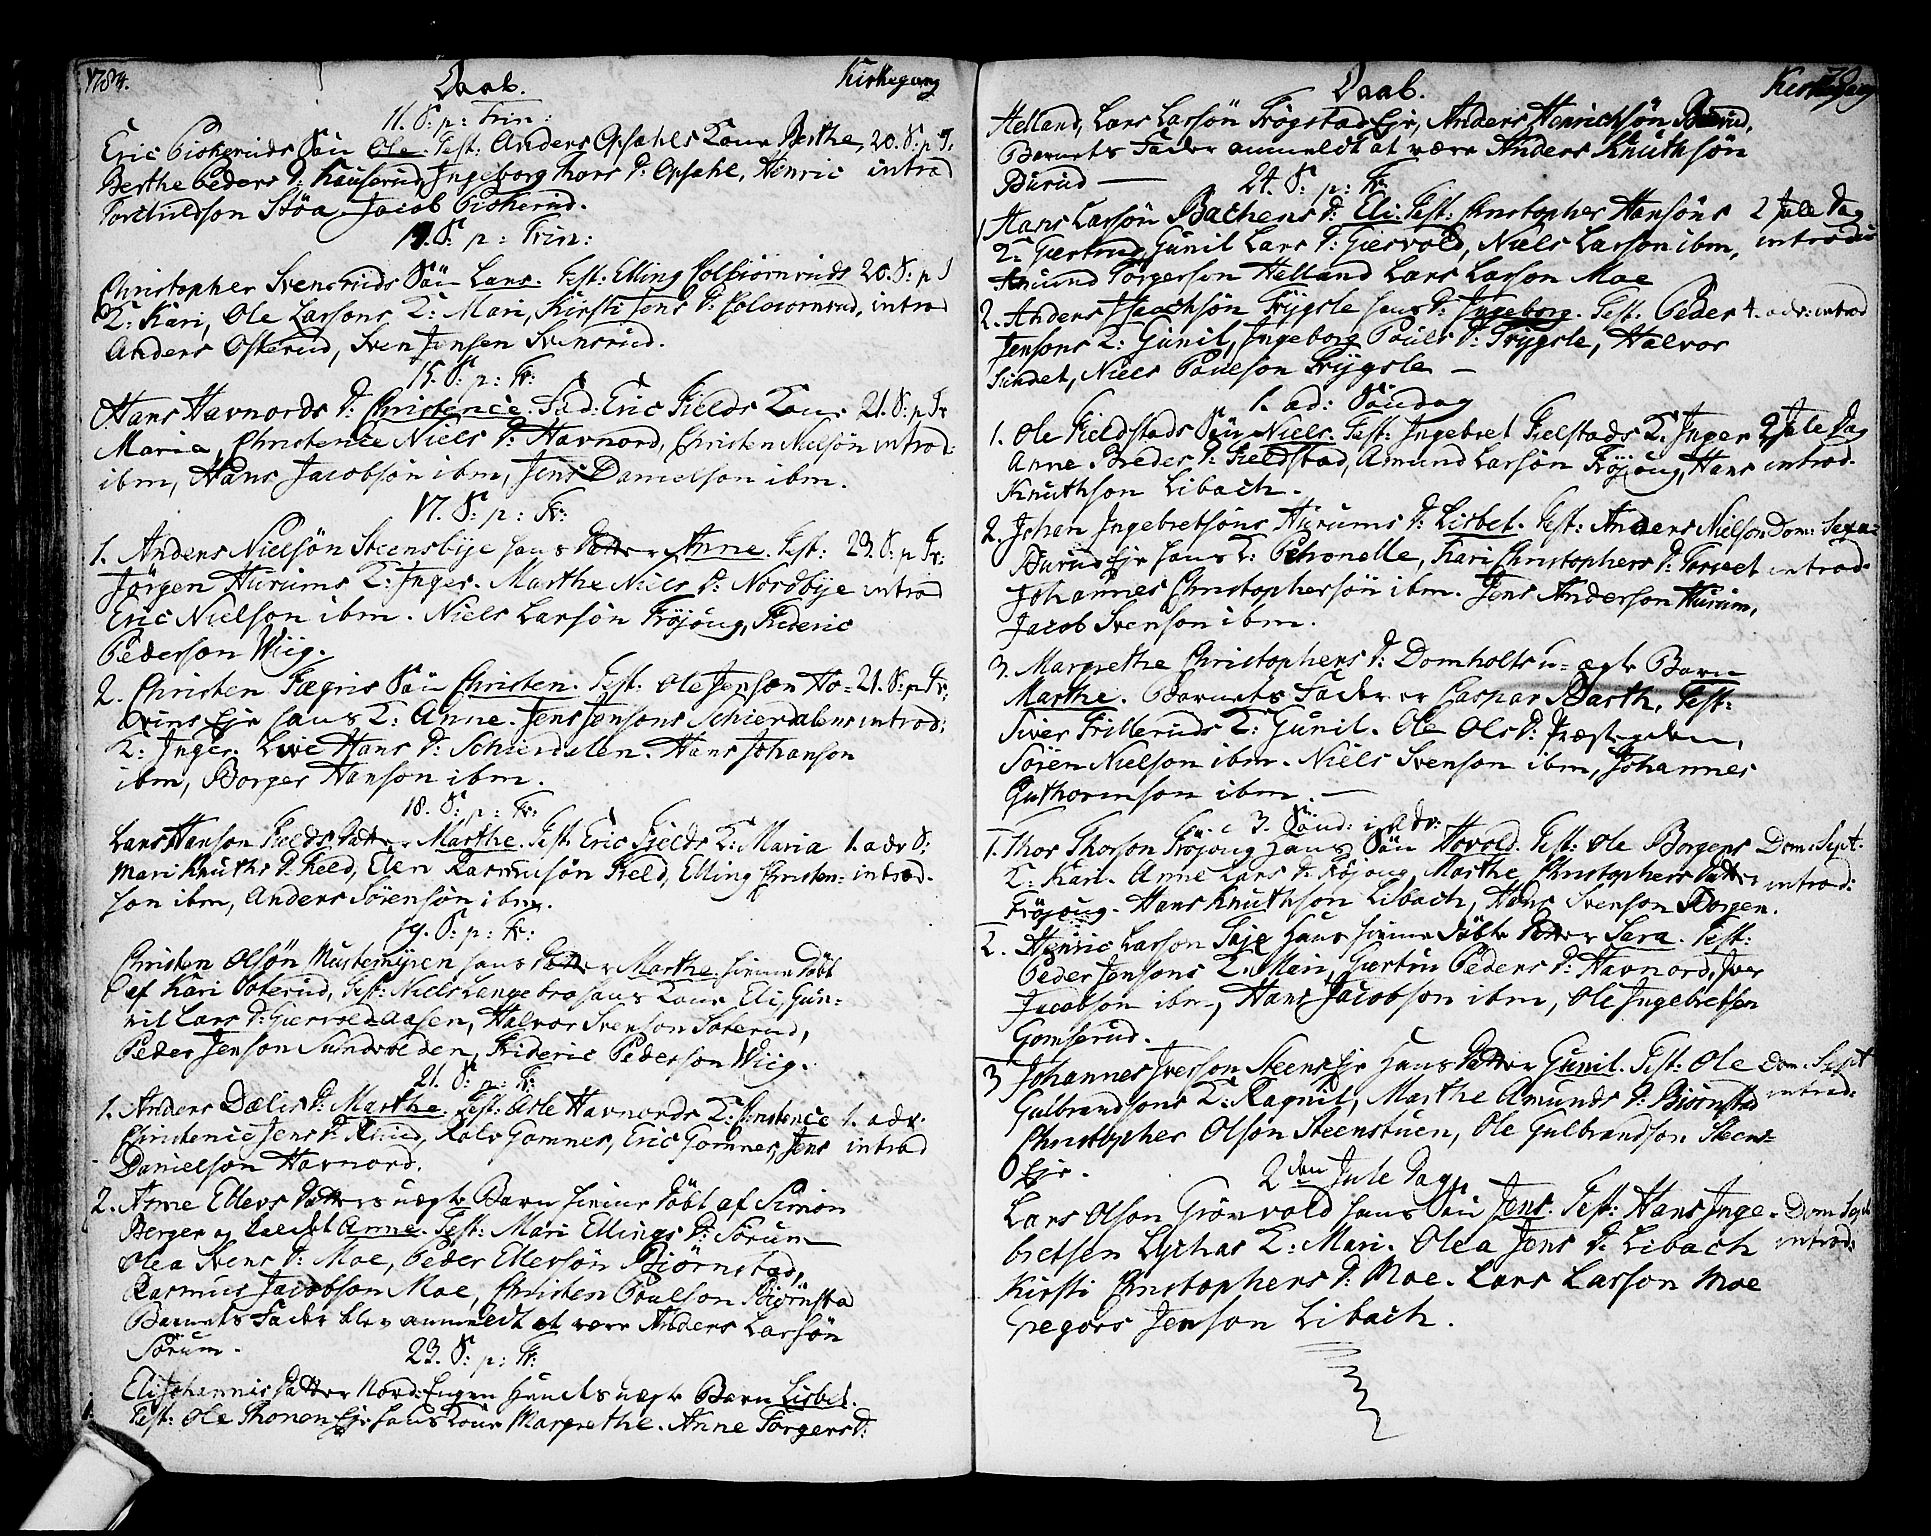 1784.
Daab.
Kirkegang
11. S: p: Trin:
Eric Piokeruds Sön Ole. Test: Anders Opsahls Kone Berthe, 20. S: p T.
Berthe Peders D: Kauserud, Ingeborg Thors D: Opsahl, Henric introd
Torchildson Stöa. Jacob Piokerud.
S: p: Trin:
Christopher Svensruds Sön Lars. Test: Elling Colbiörnruds 20. S: p T
K: Kari, Ole Larsons K: Mari, Kirsti Jens D: Colbiornrud, introd
Anders Osterud, Sven Jensen Svensrud.
15. S: p: Tr:
Hans Havnords D: Christence. Fad: Eric Fields Kone 21. S: p Tr
Maria, Christence Niels D: Havnord, Christen Nielsön introd:
ibm, Hans Jacobsön ibm, Jens Danielson ibm.
17. S: p: Tr:
1. Anders Nielsön Steensbye hans Datter Anne. Test: 23. S: p Tr:
Jörgen Hurums K: Inger. Marthe Niels D: Nordbye introd
Eric Nielson ibm. Niels Larsön Fröjoug, Frideric
Pederson Wiig.
2. Christen Fægris Sön Christen. Test: Ole Jepson Ho= 21. S: p Tr,
vrins Eje hans K: Anne. Jens Jensons Schierdalens introd:
K: Inger. Live Hans D: Schierdalen. Hans Johanson
ibm, Borger Hanson ibm.
18. S: p: Tr:
Lars Hanson Fields Datter Marthe. Test: Eric Fields K: Maria 1. adv S:
Mari Knuths D: Field, Elen Rasmusön Field, Elling Christen= introd.
son ibm, Anders Sörensön ibm.
19. S: p: Tr:
Christen Olsön Mustemyren hans Datter Marthe hiemme Döbt
af Kari Soterud, Test: Niels Langebro hans Kone Eli, Gun=
nil Lars D: Giervoldaasen, Halvor Svenson Soterud,
Peder Jenson Sundvolden, Frideric Pederson Wiig.
21. S: p: Tr:
1. Anders Dælis D: Marthe. Test: Asle Havnords K: Christence 1. adv:
Christence Jens D: Ruud, Rolv Gomner, Eric Gomner, Jens introd
Danielson Havnord.
2. Anne Ellevs Datters uægte Barn hiemme Döbt af Simon
Berger og kaldet Anne. Test: Mari Ellings D: Sörum
Olea Svens D: Moe, Peder Ellevsön Biörnstad,
Rasmus Jacobson Moe, Christen Poulson Biörnstad
Barnets Fader blev anmeldt at være Anders Larsön
Sörum.
23. S: p: Tr:
Eli Johannis Datter Nord: Engen Hendes uægte Barn Lisbet.
Test: Ole Thonon Eje hans Kone Margrethe. Anne Torgers D:
Daab.
Kirkegang
Helland, Lars Larsön Frögstad Eje, Anders Henrichsön Burud,
Barnets Fader anmeldt at være Anders Knuthsön
Burud
24. S: p: Tr:
1 Hans Larsön Bachens D: Eli. Test: Christopher Hansöns 2 Jule Dag
K: Gertrud, Gunil Lars D: Giervold, Niels Larson ibm, introd:
Amund Torgerson Helland Lars Larson Moe
2. Anders Isachsön Frygsle hans D: Ingeborg. Test. Peder 4. adv: introd
Jensons K: Gunil, Ingeborg Pouls D: Frygsle, Halvor
Sundet, Niels Poulson Frygsle
1. ad: Söndag
1. Ole Fieldstads Sön Niels. Test: Ingebret Fielstads K: Inger 2 Jule Dag
Anne Breder D: Fieldstad, Amund Larsön Fröjoug, Hans introd.
Knuthson Libach.
2. Johan Ingebretsöns Hurums D: Lisbet. Test: Anders Nielson Dom: Sexa=
Burud Eje hans K: Petronelle, Kari Christophers D: Torvet introd.
Johannes Christophersön ibm. Jens Anderson Hurum,
Jacob Svenson ibm.
3. Margrethe Christophers D: Domholts u=ægte Barn
Marthe. Barnets Fader er Caspar Barth. Test:
Siver Frilleruds K: Gunil. Ole Ols D: Præstegden,
Sören Nielson ibm. Niels Svenson ibm, Johannes
Guthormson ibm.
3. Sönd: i Adv:
1. Thor Thorson Fröjoug hans Sön Hovold. Test: Ole Borgens Dom: Sept:
K: Kari. Anne Lars D: Fröjoug, Marthe Christophers Datter introd:
Fröjoug. Hans Knuthson Libach, Hans Svenson Borgen.
2. Henric Larson Faje hans hiemme Döbte Datter Sara. Test:
Peder Jensons K: Mari, Giertru Peders D: Havnord, Iver
Jacobson ibm, Hans Jacobson ibm, Ole Ingebretsen
Gomserud.
3 Johannes Iverson Steens Eje hans Datter Gunil. Test: Ole Dom: Sept
Gulbrandsons K: Ragnil, Marthe Amunds D: Biörnstad introd:
Christopher Olsön Steenstuen, Ole Gulbrandson Steens=
Eje.
2den Jule Dag
Lars Olson Grönvold hans Sön Jens. Test: Hans Inge= Dom Sept
bretsen Lychas K: Mari. Olea Jens D: Libach introd:
Kirsti Christophers D: Moe. Lars Larson Moe
Gregors Jenson Libach.